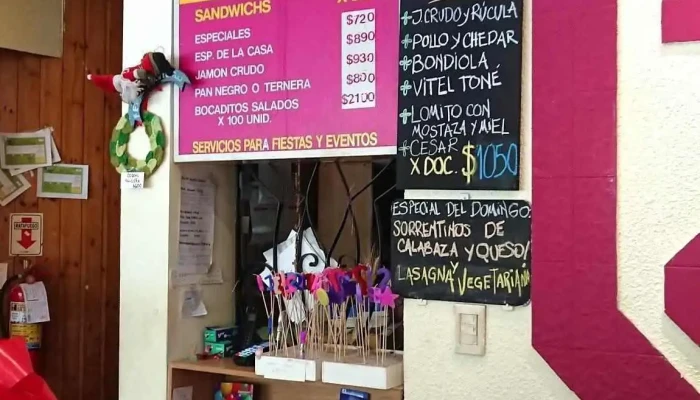 SANDWICHS
ESPECIALES $720
ESP. DE LA CASA $890
JAMON CRUDO $930
PAN NEGRO O TERNERA $800
BOCADITOS SALADOS $2100
X 100 UNID.
SERVICIOS PARA FIESTAS Y EVENTOS
+ J. CRUDO Y RÚCULA
+ POLLO Y CHEDAR
+ BONDIOLA
+ VITEL TONÉ
+ LOMITO CON
MOSTAZA Y MIEL
+ CESAR
X DOC. $1050
ESPECIAL DEL DOMINGO:
SORRENTINOS DE
CALABAZA Y QUESO/
LASAGNA VEGETARIANA
MATAFUEGO